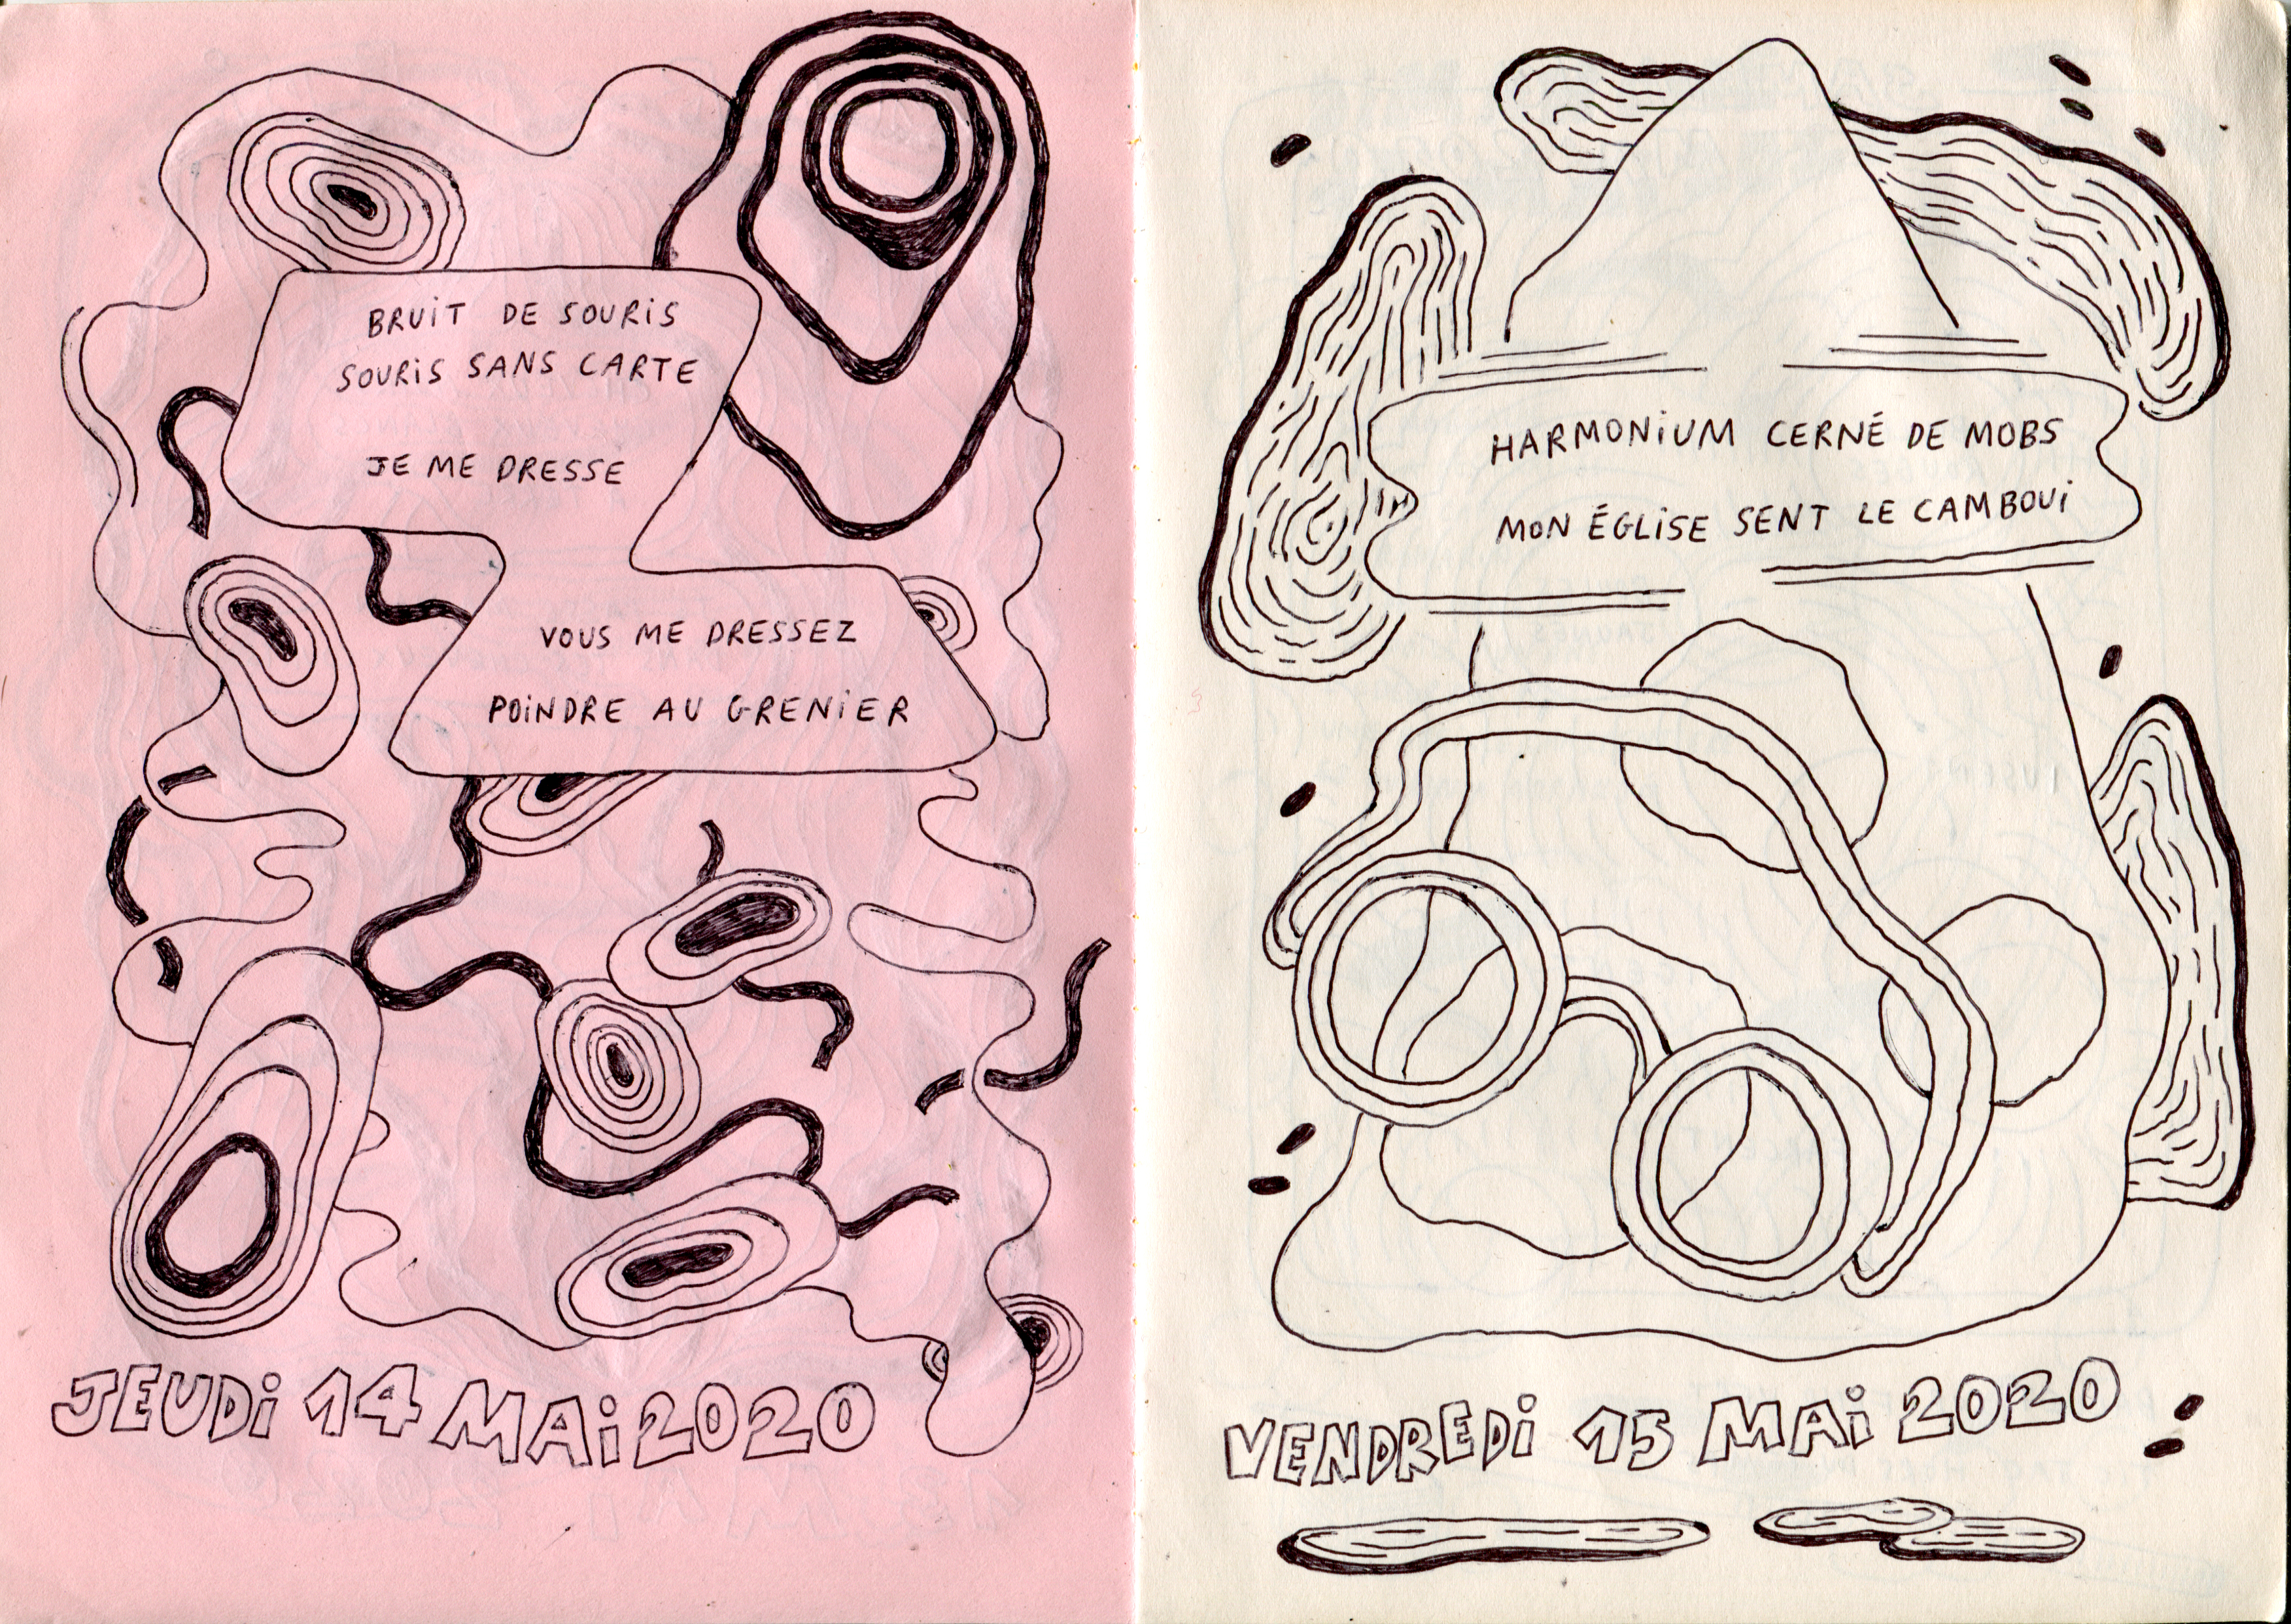 BRUiT DE SOURiS
SOURiS SANS CARTE
JE ME DRESSE
VOUS ME DRESSEZ
POiNDRE AU GRENiER
JEUDi 14 MAi 2020
HARMONiUM CERNÉ DE MOBS
MON ÉGLiSE SENT LE CAMBOUi
VENDREDi 15 MAi 2020